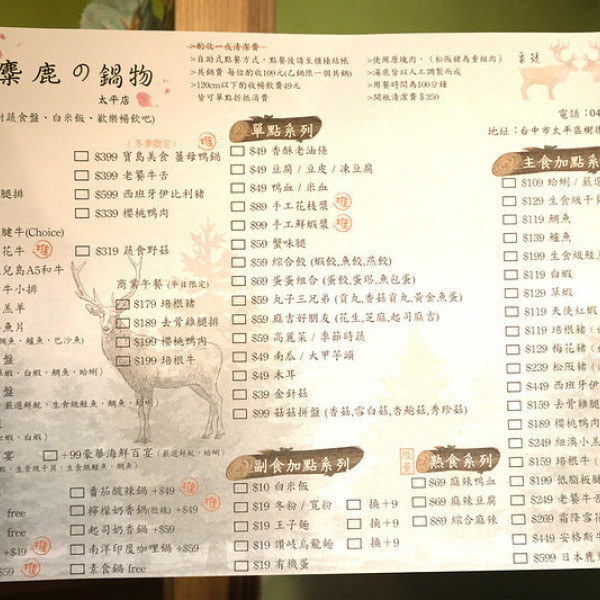 麋鹿の鍋物
太平店
附蔬食盤、白米飯、歡樂暢飲吧)
>酌收一成清潔費
>自助式點餐方式，點餐後請至櫃檯結帳
>共鍋費 每位酌收199元(乙鍋限一個共鍋)
>120cm以下酌收暢飲費49元
皆可單點折抵消費
>使用原塊肉，(松阪豬為重組肉)
>湯底皆以人工調製而成
>用餐時間為100分鐘
>開瓶清潔費$250
桌號
電話：04
地址：台中市太平區樹德
(冬季限定) 推
$399 寶島美食 薑母鴨鍋
$399 老饕牛舌
$599 西班牙伊比利豬
$339 櫻桃鴨肉
$319 蔬食野菇
腿排
腱牛(Choice)
花牛 推
兒島A5和牛
牛小排
羔羊
魚片
鯛魚，鱸魚，巴沙魚)
盤
白蝦，鯛魚，蛤蜊)
盤
嚴選鮮魷，生食級鮭魚，鯛魚)
白蝦)
宴
+99豪華海鮮百宴(嚴選鮮魷，蛤蜊，
生食級干貝，生食級鮭魚，鯛魚)
商業午餐(平日限定)
$179 培根豬
$189 去骨雞腿排
$199 櫻桃鴨肉
$199 培根牛
番茄酸辣鍋 +$49 推
檸檬奶香鍋(微辣) +$49 推
起司奶香鍋 +$59
南洋印度咖哩鍋 +$59
素食鍋 free
free
free
+$49 推
$59 推
單點系列
$49 香酥老油條
$49 豆腐 / 豆皮 / 凍豆腐
$49 鴨血 / 米血
$89 手工花枝漿 推
$99 手工鮮蝦漿 推
$59 蟹味腿
$59 綜合餃 (蝦餃,魚餃,燕餃)
$69 蛋蛋組合 (蛋餃,蛋塔,魚包蛋)
$59 丸子三兄弟 (貢丸,香菇貢丸,黃金魚蛋)
$59 麻吉好朋友 (花生,芝麻,起司麻吉)
$59 高麗菜 / 季節時蔬
$49 南瓜 / 大甲芋頭
$49 木耳
$39 金針菇
$99 菇菇拼盤 (香菇,雪白菇,杏鮑菇,秀珍菇)
副食加點系列
$10 白米飯
$19 冬粉 / 寬粉 換+9
$19 王子麵 換+9
$19 讚岐烏龍麵 換+9
$19 有機蛋
限量
熟食系列
$69 麻辣鴨血
$69 麻辣豆腐
$89 綜合麻辣
主食加點系
$109 蛤蜊 /
$129 生食級干貝
$119 鯛魚
$139 鱸魚
$199 生食級鮭
$119 白蝦
$129 草蝦
$119 天使紅蝦
$119 培根豬
$129 梅花豬
$239 松阪豬
$449 西班牙伊
$159 去骨雞腿
$189 櫻桃鴨肉
$249 紐澳小羔
$159 培根牛
$199 低脂板腱
$249 老饕牛舌
$269 霜降雪花
$449 安格斯牛
$599 日本鹿兒